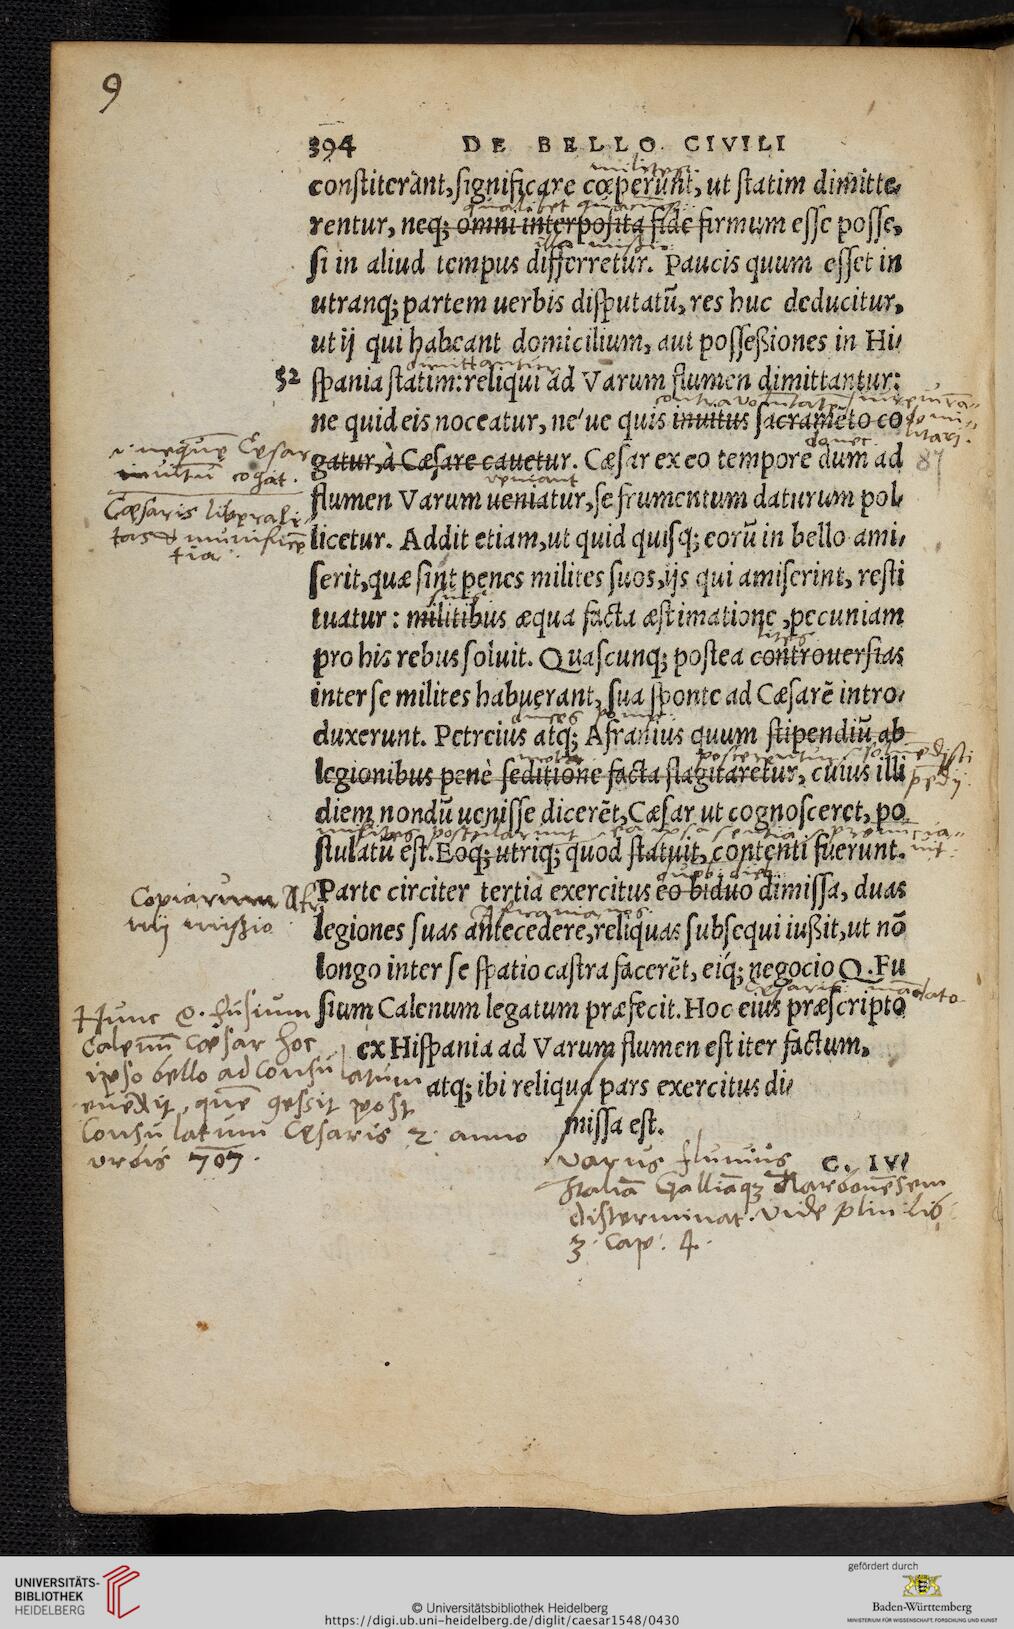 9
394 DE BELLO CIVILI
milites
constiterant, significare cœperunt, ut statim dimitte-
rentur, neq; omni interposita fide firmum esse posse,
si in aliud tempus differretur. Paucis quum esset in
utranq; partem uerbis disputatũ, res huc deducitur,
ut ij qui habeant domicilium, aut possessiones in Hi-
52 spania statim: reliqui ad Varum flumen dimittantur:
ne quid eis noceatur, ne'ue quis inuitus sacramẽto co
donec
gatur, à Cæsare cauetur. Cæsar ex eo tempore dum ad 87
neque Cęsar
cogat.
veniant
flumen Varum ueniatur, se frumentum daturum pol-
Cæsaris liberali-
tas & munificẽ
tia
licetur. Addit etiam, ut quid quisq; eorũ in bello ami-
serit, quæ sint penes milites suos, ijs qui amiserint, resti
suis
tuatur: militibus æqua facta æstimatione, pecuniam
lites
pro his rebus soluit. Quascunq; postea controuersias
inter se milites habuerant, sua sponte ad Cæsarẽ intro-
duxerunt. Petreius atq; Afranius quum stipendiũ ab
legionibus penè seditione facta flagitaretur, cuius illi
diem nondũ uenisse dicerẽt, Cæsar ut cognosceret, po
milites postularunt
stulatũ est. Eoq; utriq; quod statuit, contenti fuerunt.
Parte circiter tertia exercitus eo biduo dimissa, duas
Copiarum Afra
nij missio
Afranianos
legiones suas antecedere, reliquas subsequi iussit, ut nõ
longo inter se spatio castra facerẽt, eiq; negocio Q. Fu
Cęsaris mãdato
sium Calenum legatum præfecit. Hoc eius præscripto
ex Hispania ad Varum flumen est iter factum,
atq; ibi reliqua pars exercitus di-
missa est.
C. IV-
Hunc Q. fusium
Calenũ Cæsar hoc
ipso bello ad consu
latum
euexit, quẽ gessit post
Consulatum Cęsaris 2. anno
vrbis 707.
Varus fluuius
Italiã Galliãqȝ Narbonẽsem
disterminat. Vide plin lib
3. Cap. 4.
UNIVERSITÄTS-
BIBLIOTHEK
HEIDELBERG
© Universitätsbibliothek Heidelberg
https://digi.ub.uni-heidelberg.de/diglit/caesar1548/0430
gefördert durch
Baden-Württemberg
MINISTERIUM FÜR WISSENSCHAFT, FORSCHUNG UND KUNST